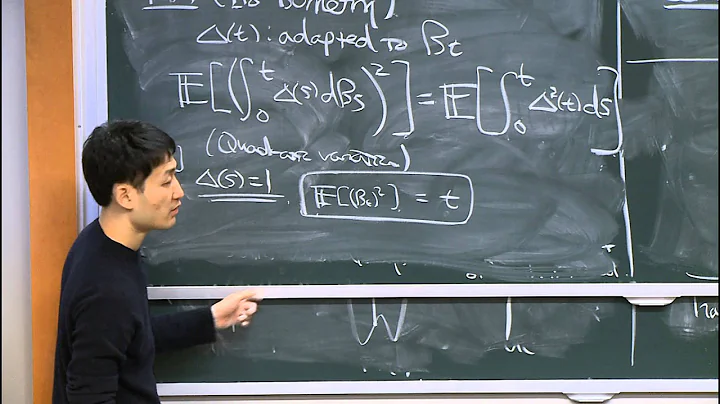 (Itô isometry)
Δ(t): adapted to B_t
𝔼[(∫_0^t Δ(s)dB_s)^2] = 𝔼[∫_0^t Δ^2(t)ds]
(Quadratic variation)
Δ(s)=1 𝔼[(B_t)^2] = t
ha